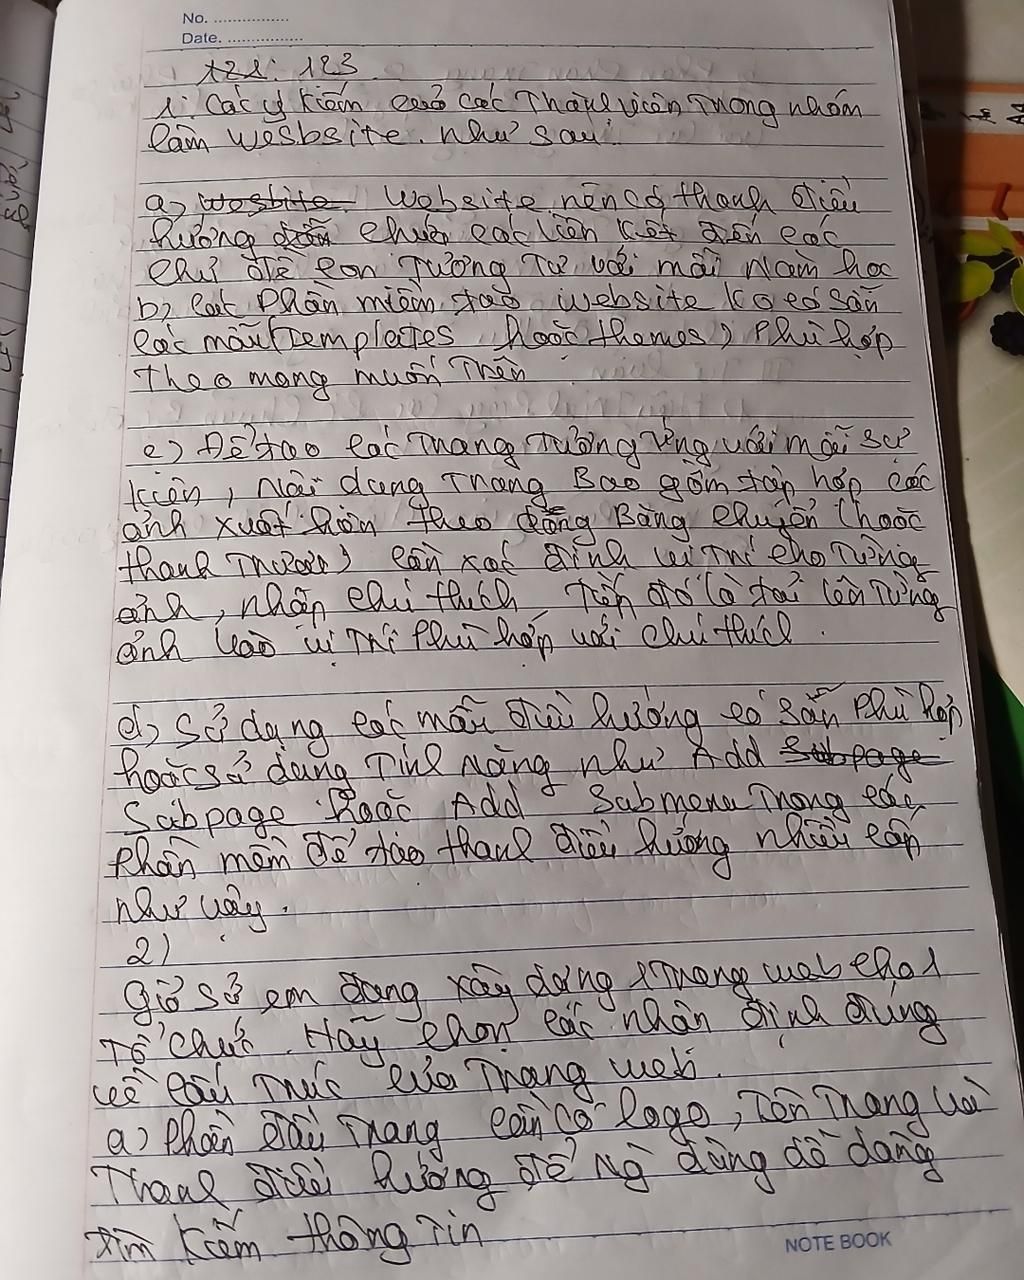 No. ................
Date. ................
121: 123
1: Các ý kiến của các Thành viên Trong nhóm
làm wesbsite. như sau:
a) Website nên có thanh điều
hướng chứa các liên kết đến các
chủ đề con Tương Tự với mỗi Năm học
b) Các Phần miềm tạo website Ko có sẵn
các mẫu (Templates hoặc themes) Phù hợp
Theo mong muốn Trên
c) Để tạo các Trang Tương Ứng với mỗi sự
kiện, Nội dung Trang Bao gồm tập hợp các
ảnh xuất hiện theo dạng Băng chuyền (hoặc
thanh Trượt) cần xác định vị Trí cho Từng
ảnh, nhập chú thích, Tiếp đó là tải lên Từng
ảnh vào vị Trí Phù hợp với chú thích.
d) Sử dụng các mẫu điều hướng có sẵn Phù hợp
hoặc sử dụng Tính Năng như Add
Subpage hoặc Add Submenu Trong các
Phần mềm để tạo thanh điều hướng nhiều cấp
như vậy.
2)
Giả sử em đang xây dựng 1 Trang web cho 1
Tổ chức. Hãy chọn các nhận định đúng
về cấu Trúc của Trang web.
a) Phần đầu Trang cần có logo, Tên Trang và
Thanh điều hướng để Ng dùng dễ dàng
tìm kiếm thông Tin
NOTE BOOK